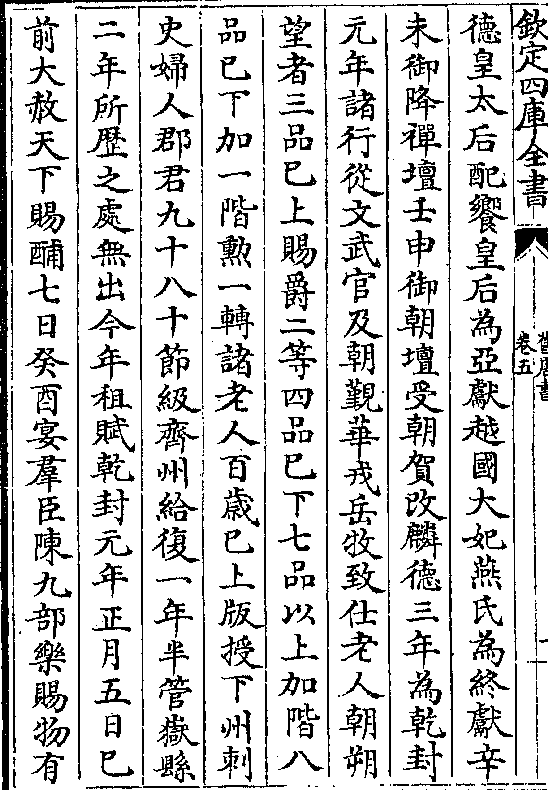 欽定四庫全書
舊唐書
卷五
一
德皇太后配饗皇后為亞獻越國大妃燕氏為終獻辛
未御降禪壇壬申御朝壇受朝賀改麟德三年為乾封
元年諸行從文武官及朝覲華戎岳牧致仕老人朝朔
望者三品已上賜爵二等四品已下七品以上加階八
品已下加一階勲一轉諸老人百歲已上版授下州刺
史婦人郡君九十八十節級齊州給復一年半管嶽縣
二年所歴之處無出今年租賦乾封元年正月五日已
前大赦天下賜酺七日癸酉宴羣臣陳九部樂賜物有